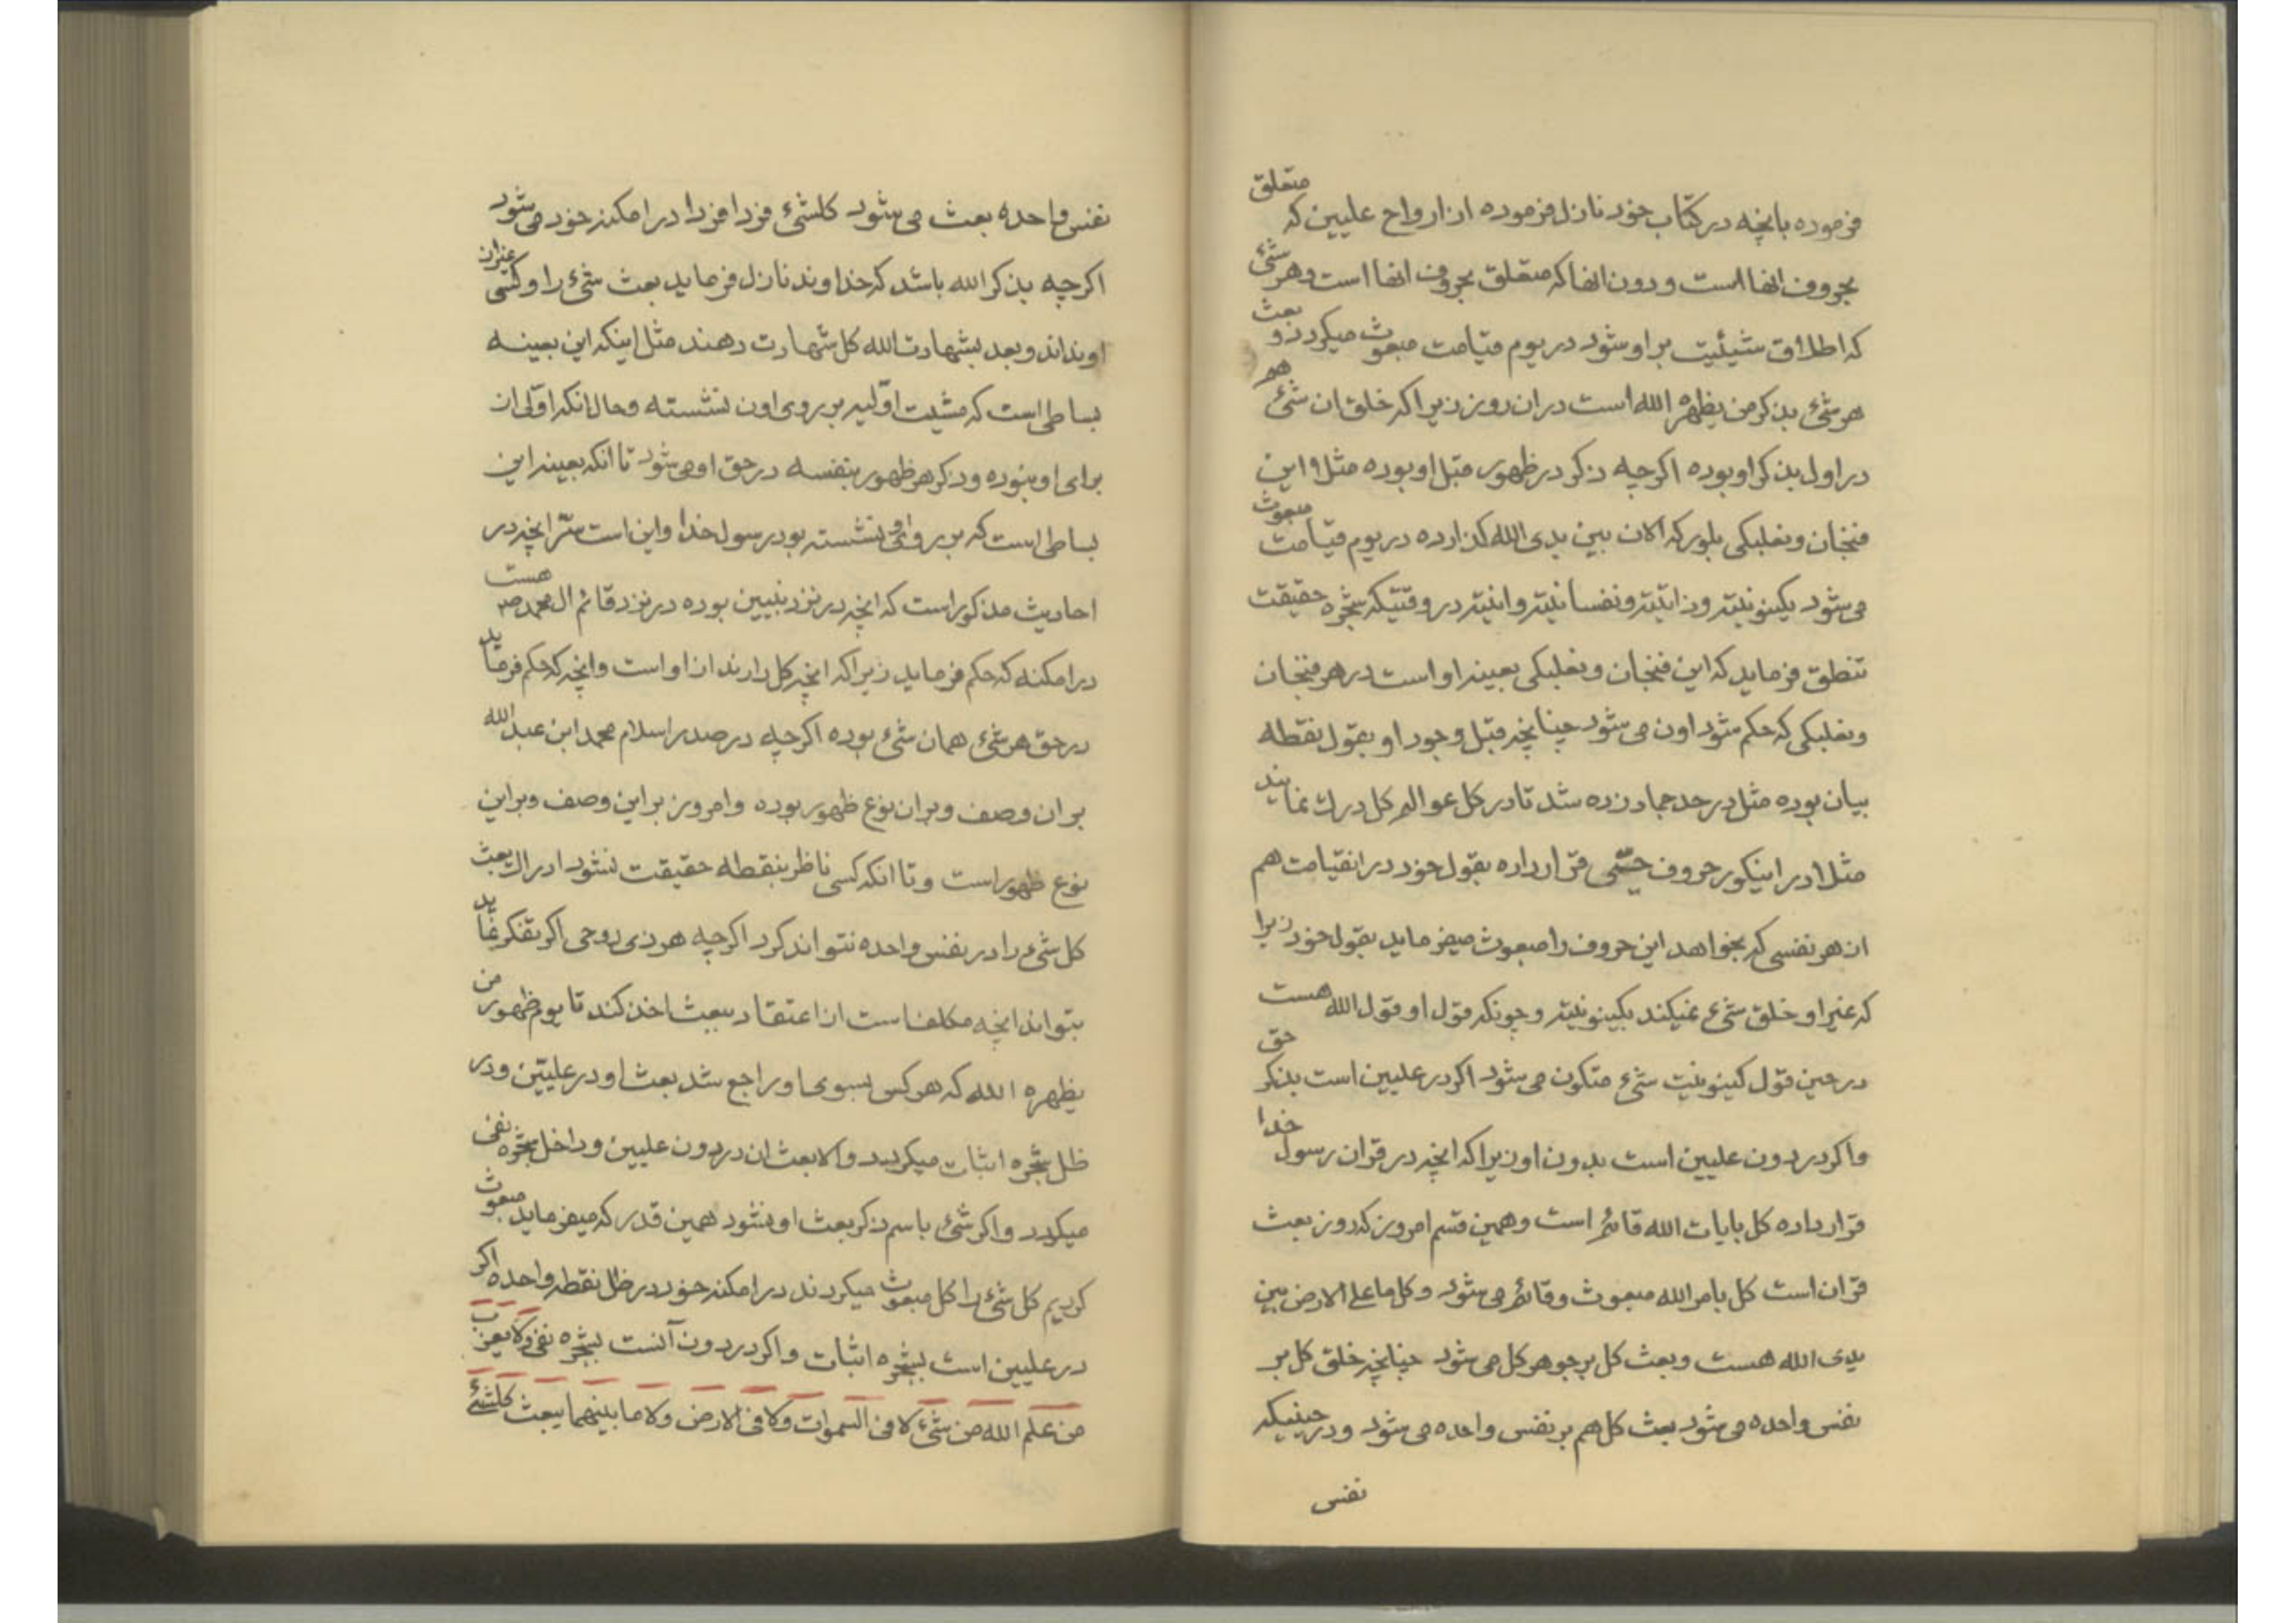 فرموده بانچه در کتاب خود نازل فرموده از ارواح علیین که متعلق
بحروف انها است و دون انها که متعلق بحروف انها است و هر شئ
که اطلاق شیئیت بر او شود در یوم قیامت مبعوث میکردد و بعث
هر شئ بذکر من یظهره الله است در ان روز زیرا که خلق ان شئ هم
در اول بذکر او بوده اکرچه ذکر در ظهور قبل او بوده مثلا این
فنجان و نعلبکی بلور که الان بین یدی الله کذارده در یوم قیامت مبعوث
می شود بکینونیته و ذاتیته و نفسانیته و انیته در وقتیکه شجره حقیقت
تنطق فرماید که این فنجان و نعلبکی بعینه او است در هر فنجان
و نعلبکی که حکم شود اون می شود چنانچه قبل وجود او بقول نقطه
بیان بوده مثل در حد جماد زده شد تا در کل عوالم کل درك نمایند
مثلا در اینکور حروف حیّ قرار داده بقول خود در انقیامت هم
از هر نفسی که بخواهد این حروف را مبعوث میفرماید بقول خود زیرا
که غیر او خلق شئ نمیکند بکینونیته و چونکه قول او قول الله هست
در حین قول کینونیت شئ متکون می شود اکر در علیین است بذکر حق
و اکر در دون علیین است بدون او زیرا که انچه در قران رسول خدا
قرار داده کل بایات الله قائم است و همین قسم امروز که روز بعث
قران است کل بامر الله مبعوث و قائم می شود و کل ما علی الارض بین
یدی الله هست و بعث کل بر جوهر کل می شود چنانچه خلق کل بر
نفس واحده می شود بعث کل هم بر نفس واحده می شود و در حینیکه
نفس
نفس واحده بعث می شود کلشئ فردا فردا در امکنه خود می شود
اکرچه بذکر الله باشد که خداوند نازل فرماید بعث شئ را و کسی غیر از
او نداند و بعد بشهادت الله کل شهادت دهند مثل اینکه این بعینه
بساطی است که مشیت اوّلیه بر روی اون ننشسته و حال انکه اوّلی از
برای او نبوده و ذکر هر ظهور بنفسه در حق او می شود تا انکه بعینه این
بساطی است که بر روی او نشسته بود رسول خدا و این است سرّ انچه در
احادیث مذکور است که انچه در نزد نبیین بوده در نزد قائم ال محمد ص هست
در امکنه که حکم فرماید زیرا که انچه کل دارند از او است و انچه که حکم فرماید
در حق هر شئ همان شئ بوده اکرچه در صدر اسلام محمد ابن عبد الله
بر ان وصف و بر ان نوع ظهور بوده و امروز بر این وصف و بر این
نوع ظهور است و تا انکه کسی ناظر بنقطه حقیقت نشود ادراك بعث
کل شئ را در نفس واحده نتواند کرد اکرچه هر ذی روحی اکر تفکر نماید
بتواند انچه مکلف است از اعتقاد ببعث اخذ کند تا یوم ظهور من
یظهره الله که هر کس بسوی او راجع شد بعث او در علیّین و در
ظل شجره اثبات میکردد و الا بعث ان در دون علیین و داخل شجره نفی
میکردد و اکر شئ باسم ذکر بعث او نشود همین قدر که میفرماید مبعوث
کردیم کل شئ را کل مبعوث میکردند در امکنه خود در ظل نقطه واحده اکر
در علیین است بشجره اثبات و اکر در دون آنست بشجره نفی و لا یعزب
من علم الله من شئ لا فی السموات و لا فی الارض و لا ما بینهما یبعث کلشئ